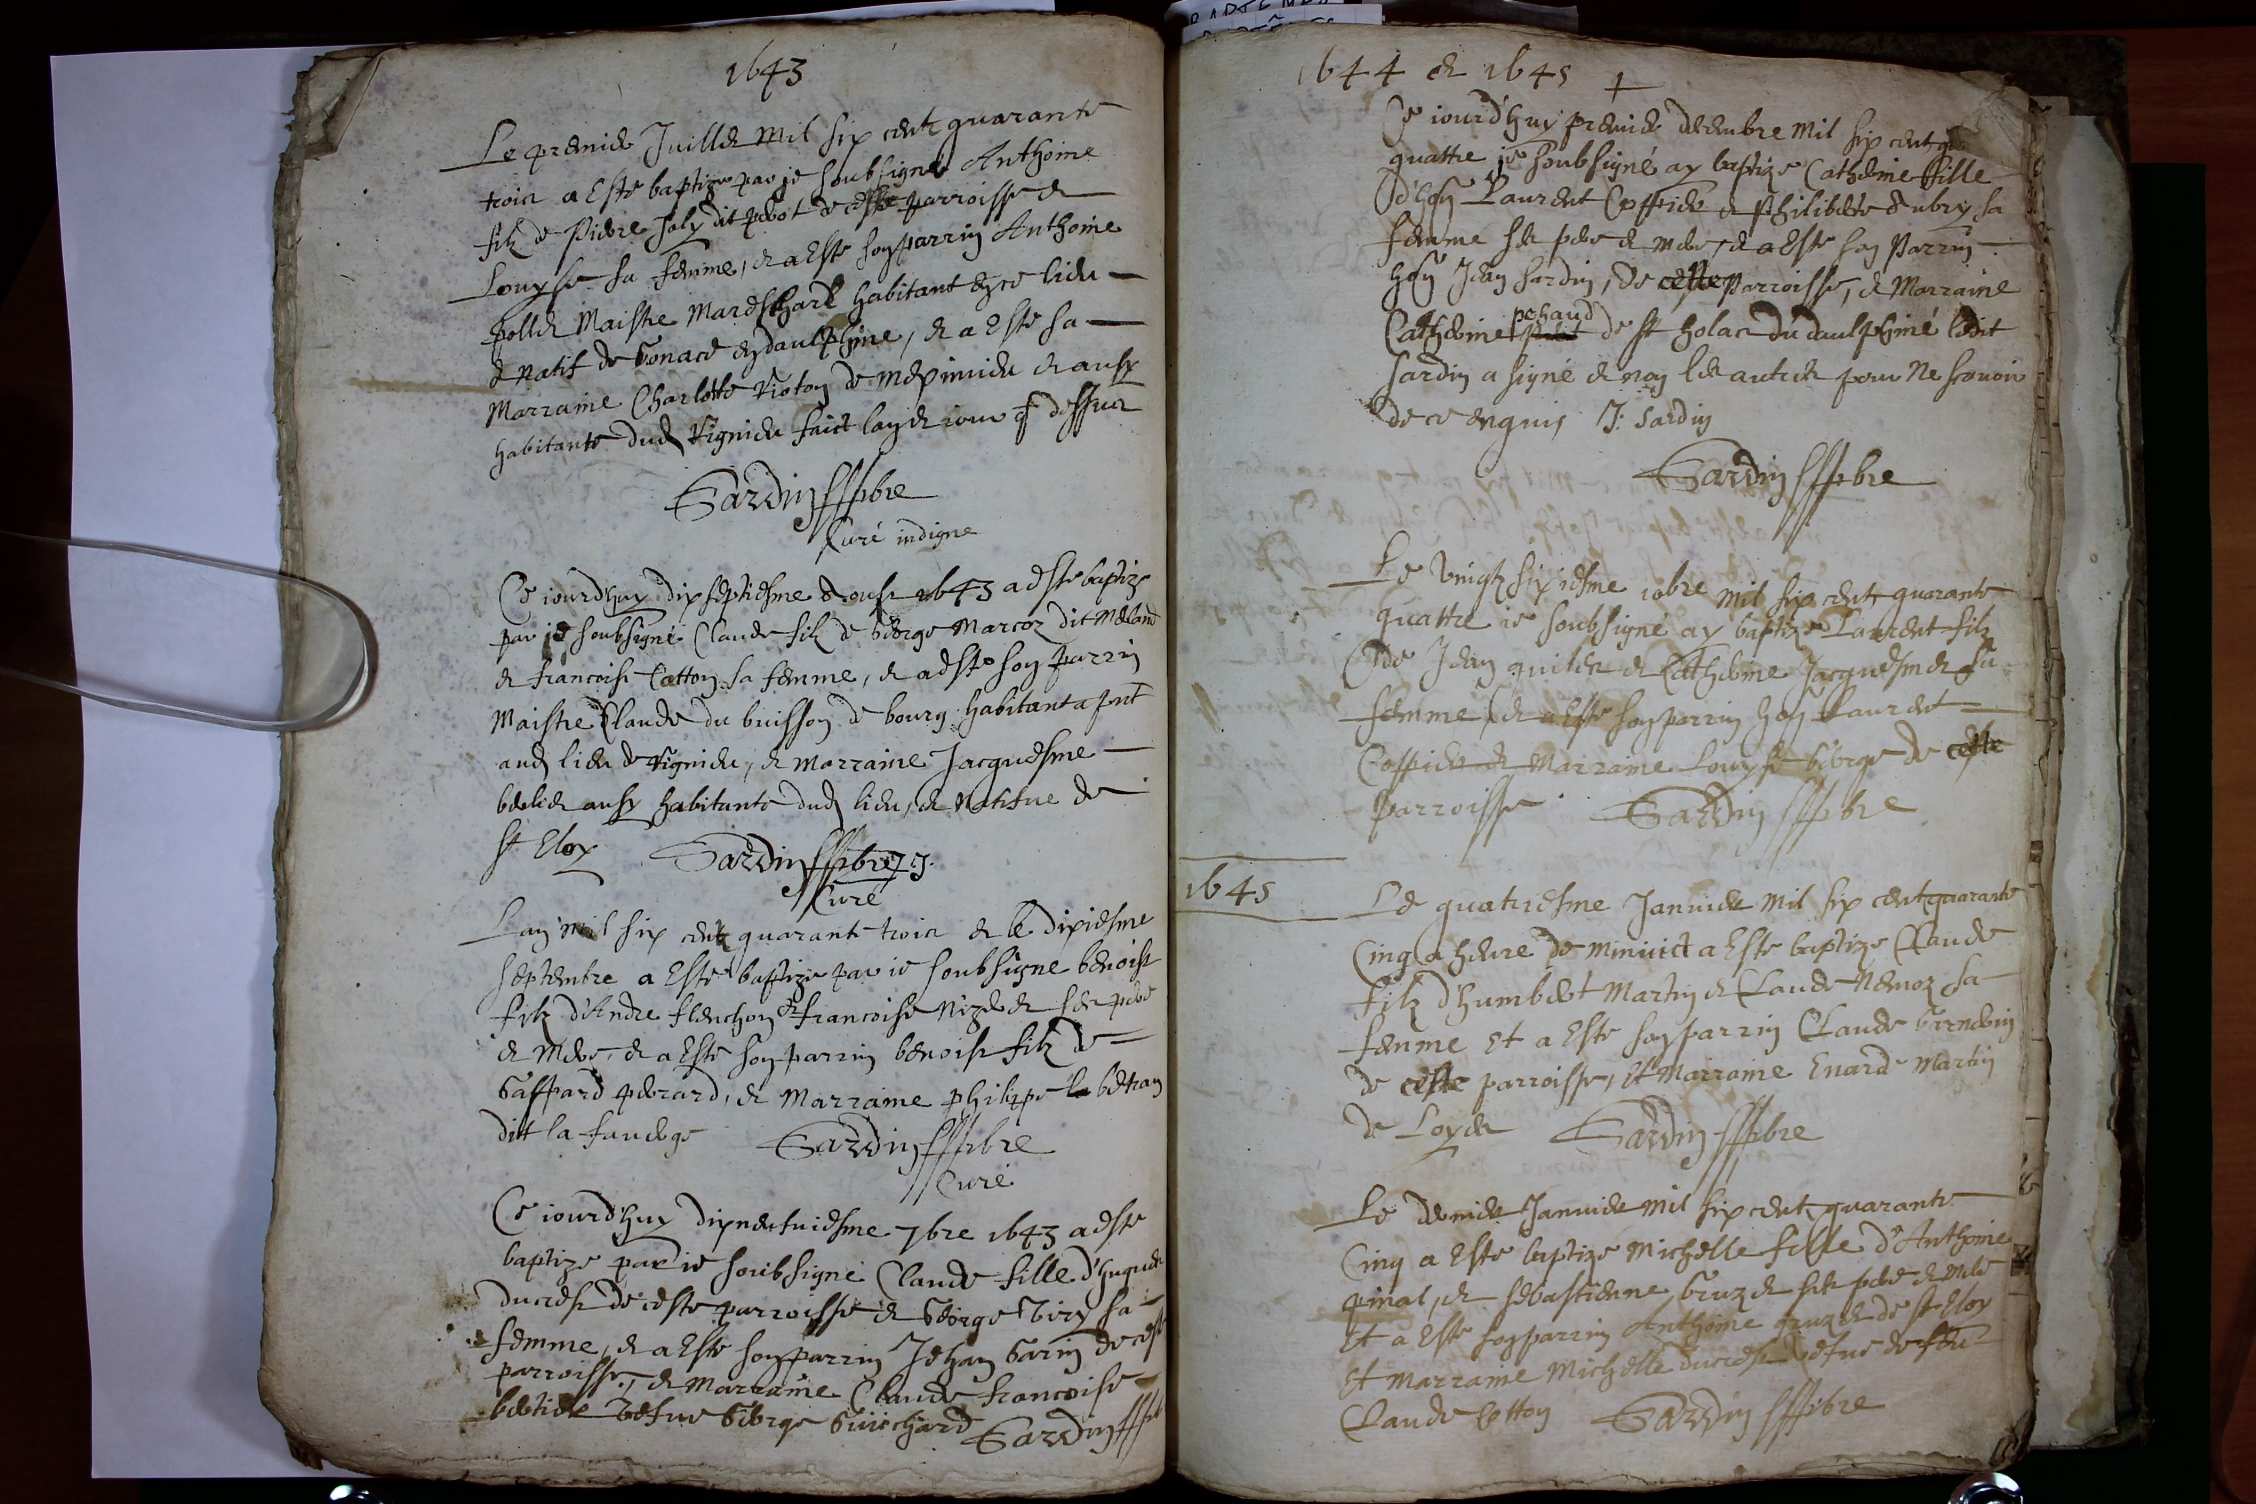 1643
Le premier Juillet Mil six cent quarante
trois a esté baptize par je soubsigné Anthoine
filz de Pierre Joly dit pérot de ceste parroisse et
Louyse sa femme, et a esté son parrin Anthoine
pollet Maistre Mareschark habitant en ce lieu
et natif de en daulphine, et a esté sa
Marraine Charlotte Violon de Meximieu et aussy
habitante dud Vignieu faict lan et jour q dessus
Sardin pbre
Curé indigne
Ce jourdhuy dix septiesme d'oust 1643 a esté baptize
par je soubsigné Claude filz de George Marcoz dit Meland
et francoise Cotton sa femme, et a esté son parrin
Maistre Claude du buisson de bourg habitant a pnt
aud lieu de Vignieu, et marraine Jacquesme
aussy habitante dud lieu, et natifue de
st Eloy Sardin pbre
Curé
Lan mil six cent quarante trois et le dixiesme
septembre a esté baptizé par je soubsigne benoist
filz d'Andre flenchon et francoise ses pere
et mere, et a esté son parrin benoist filz de
Gaspard perard, et marraine philippe la betran
dit la fauerge Sardin pbre
Curé
Ce jourdhuy dixneufuiesme 7bre 1643 a esté
baptize par je soubsigné Claude fille d'hugues
ducrest de ceste parroisse et George Viry sa
femme, et a esté son parrin Jehan Garin de ceste
parroisse, et marraine Claude francoise
vefue George Guichard Sardin pbre
1644 et 1645
Ce jourd'huy premier decembre Mil six cent
quattre je soubsigné ay baptize Catherine fille
d'hon Laurent Coppier et Philiberte Aubry sa
femme ses pere et mere, et a esté son Parrin
hon Jean Sardin, de ceste parroisse, et Marraine
pehaud
Catherine de st holas du daulphiné ledit
Sardin a signé et non les autres pour ne scauoir
de ce enquis J: Sardin
Sardin pbre
Le vingt sixiesme 10bre mil six cent quarante
quattre je soubsigné ay baptize Laurent filz
de Jean quilet et Catherine Jacquesmet sa
femme, et a esté son parrin hon Laurent
Coppier et Marraine Louyse George de ceste
parroisse Sardin pbre
1645
Le quatriesme Januier Mil six cent quarante
Cinq a heure de minuict a esté baptize Claude
filz d'humbert Martin et Claude Nemoz sa
femme Et a esté son parrin Claude
de ceste parroisse, et Marraine Enarde Martin
de Loyes Sardin pbre
Le dernier Januier Mil six cent quarante
Cinq a esté baptize Michelle fille d'Anthoine
pinat, et sebastienne Gruzet ses pere et mere
Et a esté son parrin Anthoine gruzet de st Eloy
Et marraine Michelle ducrest vefue de feu
Claude Cotton Sardin pbre